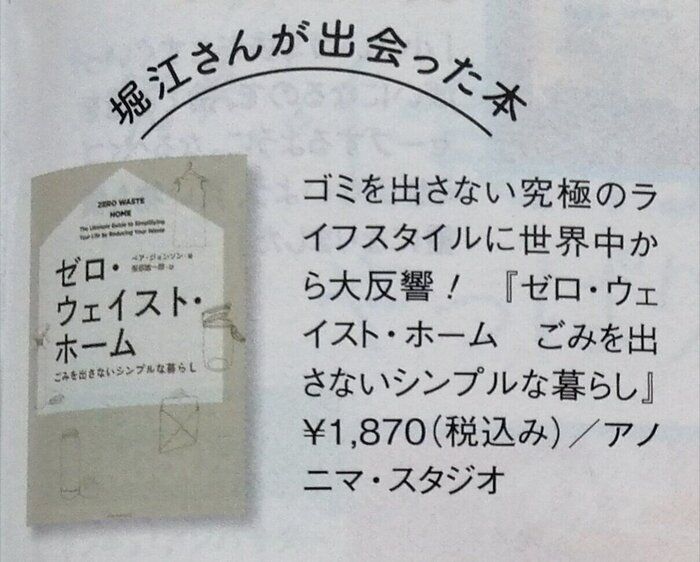 堀江さんが出会った本
ZERO WASTE
HOME
The Ultimate Guide to Simplifying
Your Life by Reducing Your Waste
ベア・ジョンソン 著
服部雄一郎 訳
ゼロ・
ウェイスト・
ホーム
ごみを出さないシンプルな暮らし
ゴミを出さない究極のラ
イフスタイルに世界中か
ら大反響！　『ゼロ・ウェ
イスト・ホーム　ごみを出
さないシンプルな暮らし』
¥1,870（税込み）／アノ
ニマ・スタジオ